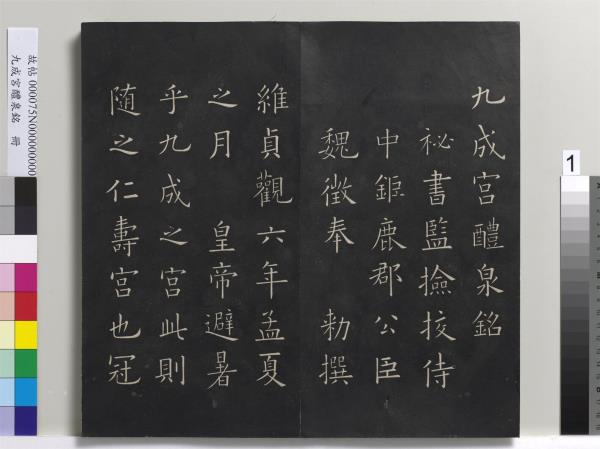 九成宮醴泉銘
祕書監撿挍侍
中鉅鹿郡公臣
魏徵奉 勑撰
維貞觀六年孟夏
之月 皇帝避暑
乎九成之宮此則
随之仁壽宮也冠
故帖 000075N000000000
九成宮醴泉銘 冊
1